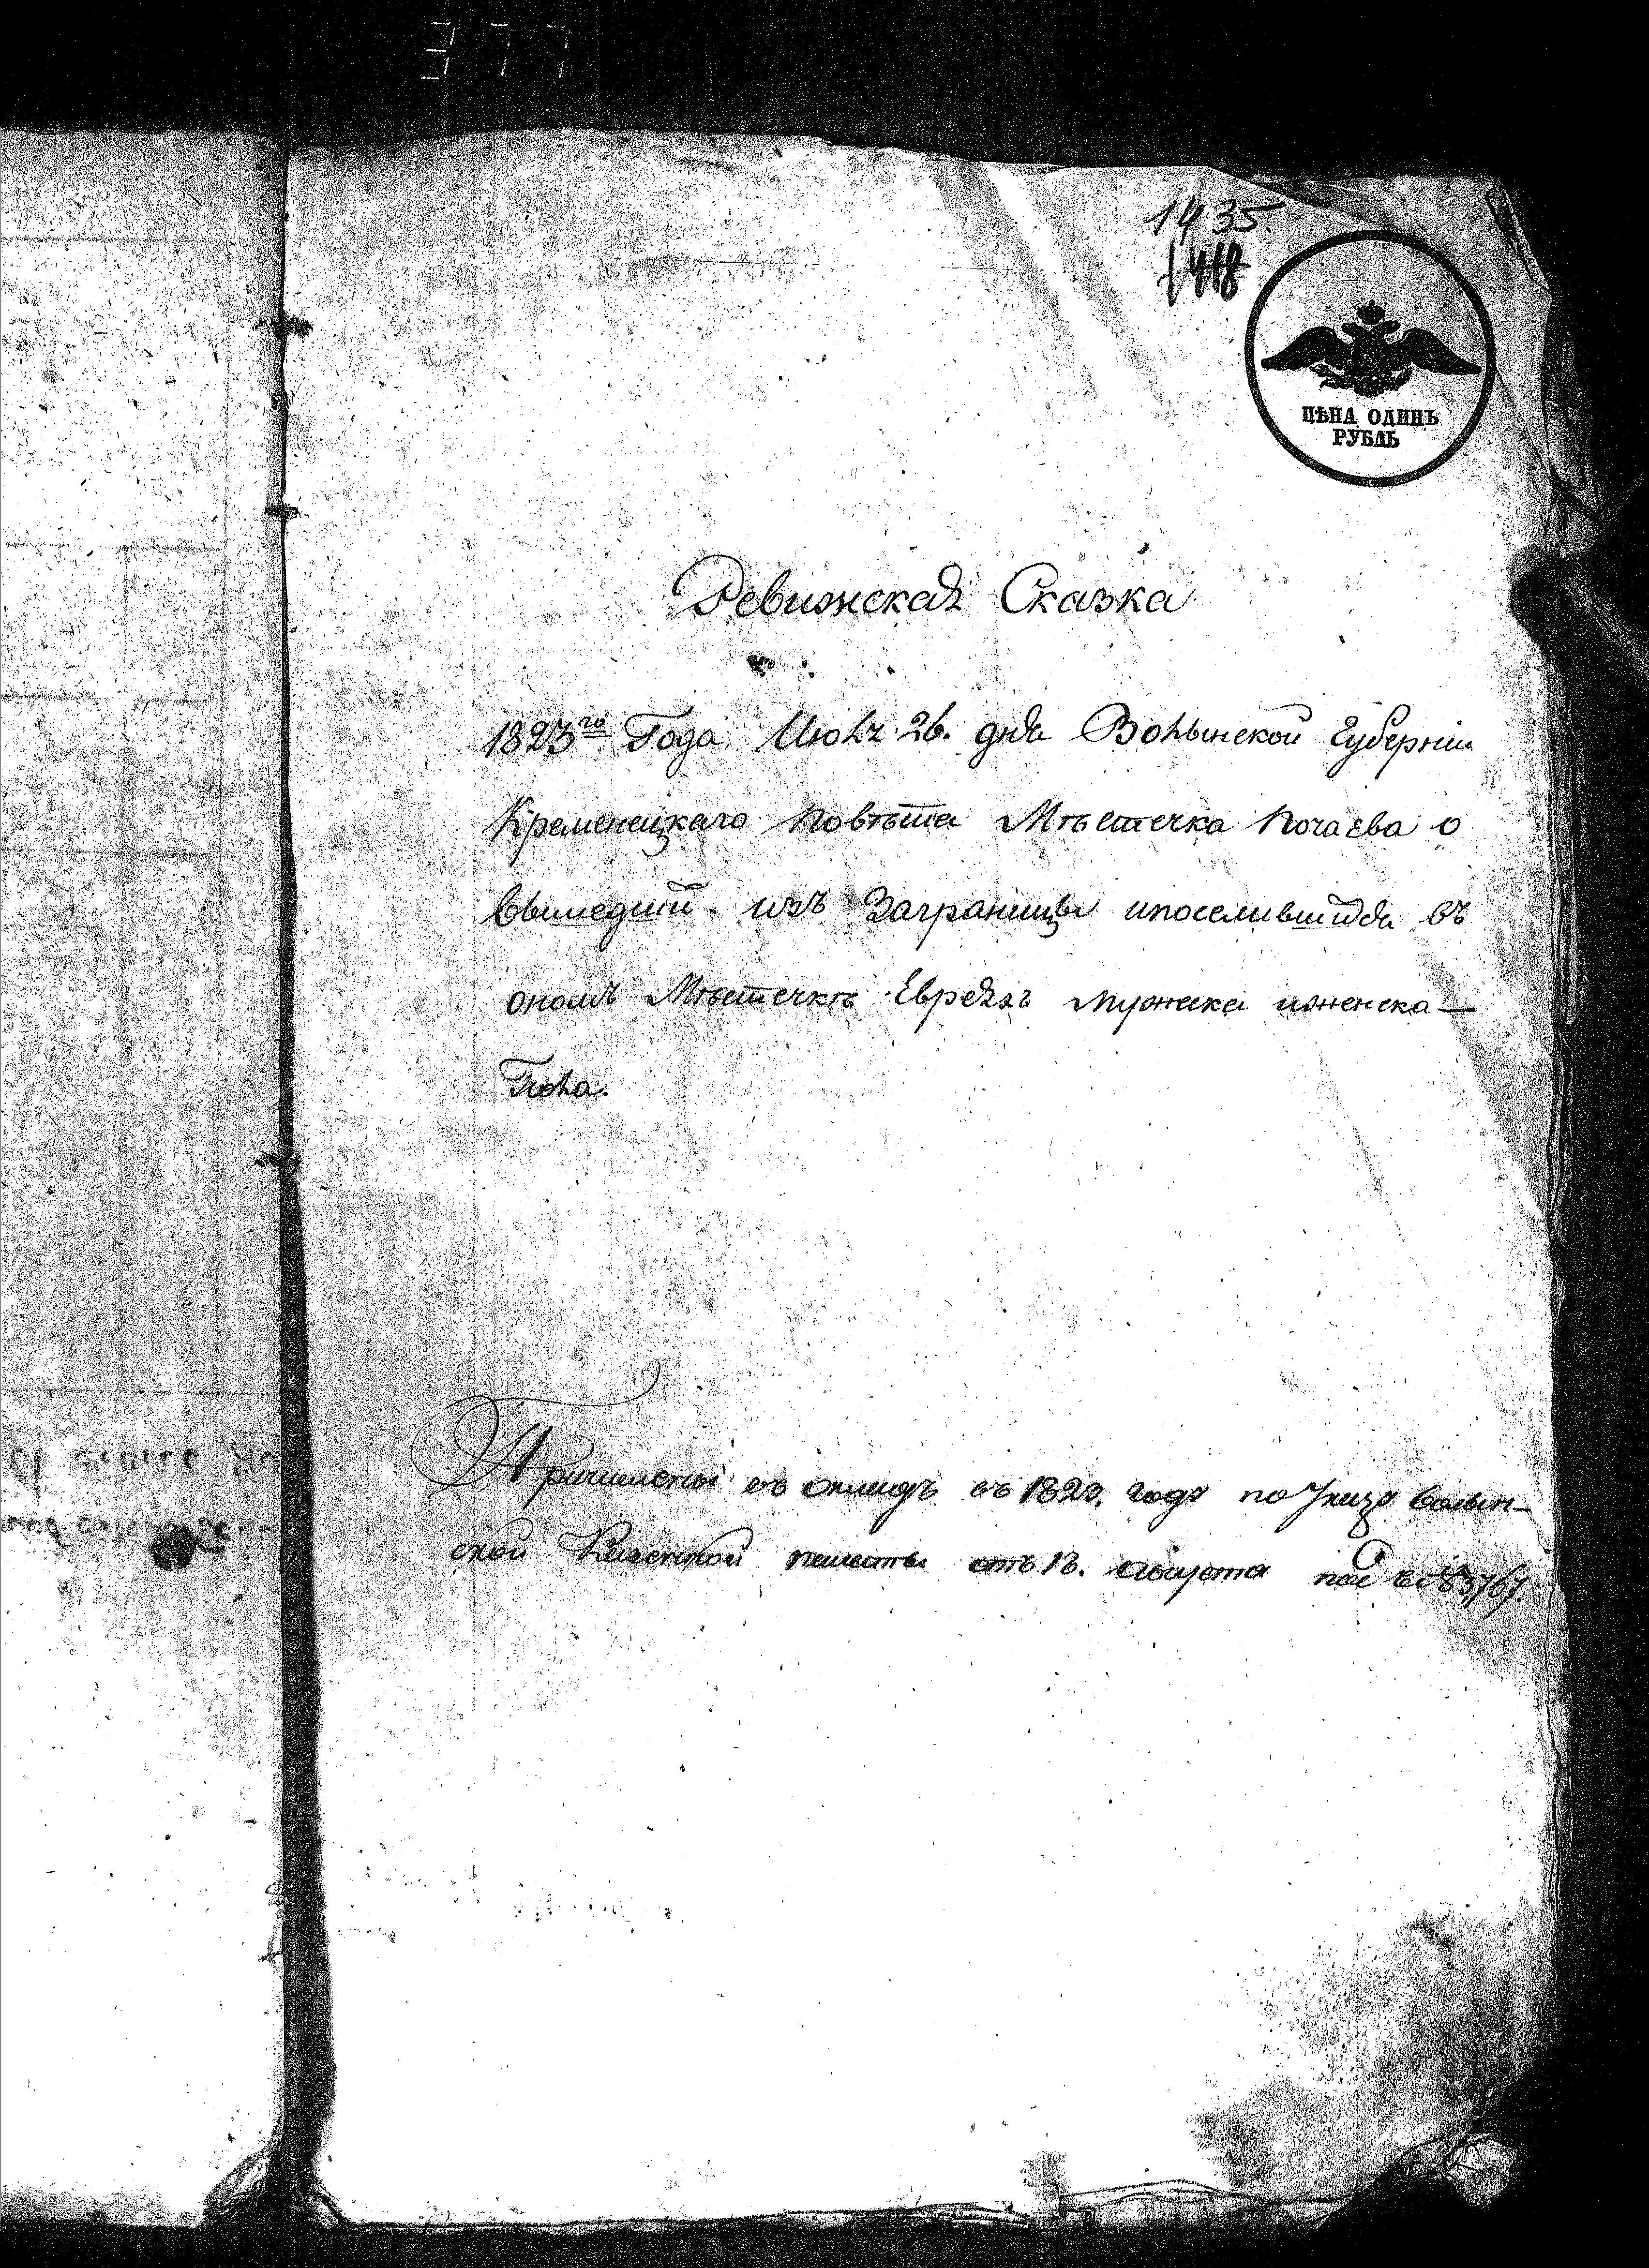 377
1435.
1418
ЦѢНА ОДИНЪ
РУБЛЬ
Ревижская Сказка
1823го Года Июля 26. дня Волынской Губерніи
Кременецкаго повѣта Мѣстечка Почаева о
вышедши изъ Заграницы ипоселившихся въ
ономъ Мѣстечкѣ Евреяхъ мужеска иженска—
Пола.
Причислены въ окладъ съ 1823. года по Указу волын-
ской Казенной палаты отъ 13. августа